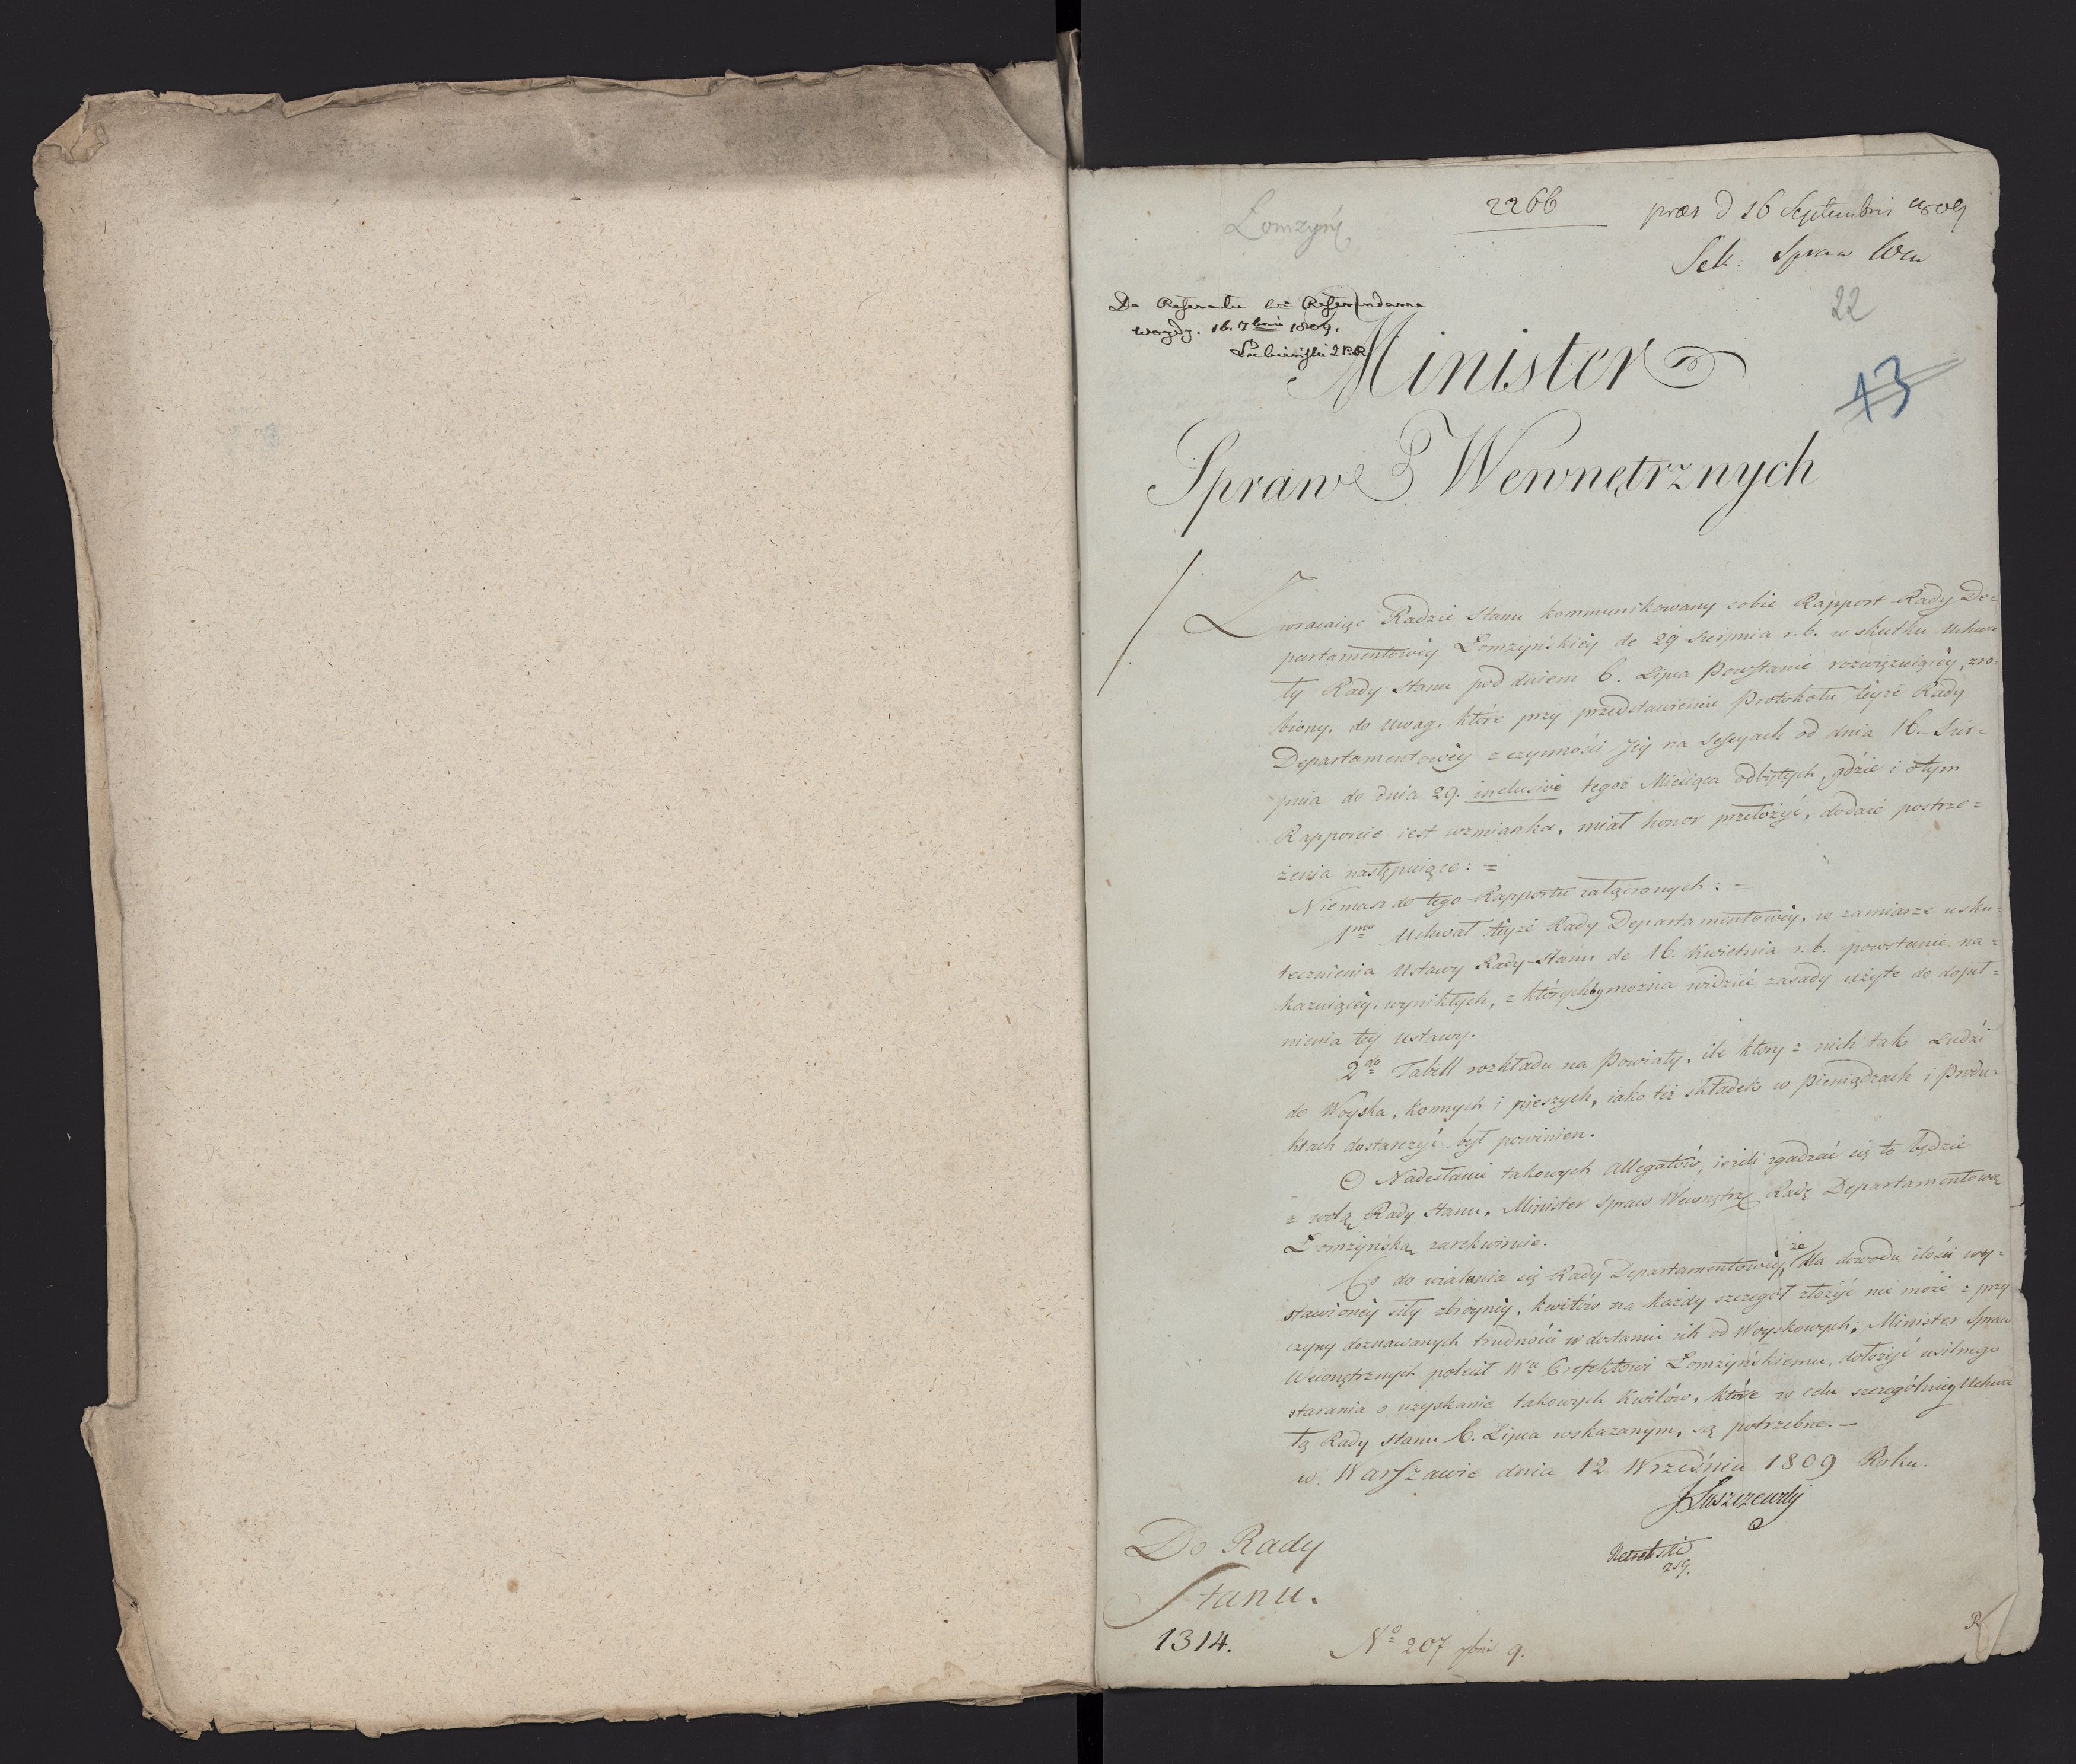 Łomżyń.
2266
præs d 16 Septembris 1809
Sek. Spraw Wew
22
Do Referatu
16. 7bris 1809.
Lubieński
13
Minister
Spraw Wewnętrznych
Zwracaiąc Radzie Stanu kommunikowany sobie Rapport Rady De=
partamentowéy Łomżyńskiéy de 29 Sierpnia r. b. w skutku Uchwa
ły Rady Stanu pod dniem 6. Lipca Powstanie rozwięzuiącéy, zro=
biony, do uwag, które przy przedstawieniu Protokołu téyże Rady
Departamentowéy z czynności Jéy na Sessyach od dnia 16. Sier=
pnia do dnia 29. inclusive tegoż Miesiąca odbytych, gdzie i o tym
Rapporcie iest wzmianka, miał honor przełożyć, dodaie postrze=
żenia następuiące: =
Niemasz do tego Rapportu załączonych: =
1mo Uchwał téyże Rady Departamentowéy, w zamiarze usku=
tecznienia Ustawy Rady Stanu de 16. Kwietnia r. b. powstanie na=
kazuiącéy, wynikłych, z którychby można widzieć zasady użyte do dopeł=
nienia téy Ustawy.
2do Tabell rozkładu na Powiaty, ile który z nich tak Ludzi
do Woyska, konnych i pieszych, iako też składek w pieniądzach i Produ=
ktach dostarczyć był powinien.
O Nadesłanie takowych allegatów, ieżeli zgadzać się to będzie
z wolą Rady Stanu, Minister Spraw Wewnętrz Radę Departamentową
Łomżyńską zarekwiruie.
Co do użalenia się Rady Departamentowéy, że dla dowodu ilości wy=
stawionéy siły zbroynéy, kwitów na każdy szczegół złożyć nie może z przy
czyny doznawanych trudności w dostaniu ich od Woyskowych; Minister Spraw
Wewnętrznych polecił Wu Prefektowi Łomżyńskiemu, dołożyć usilnego
starania o uzyskanie takowych kwitów, które w celu szczególniey Uchwa
łą Rady Stanu 6. Lipca wskazanym, są potrzebne. —
w Warszawie dnia 12 Września 1809 Roku.
JŁuszczewski
Do Rady
Stanu.
1314.
No 207 7bris 9.